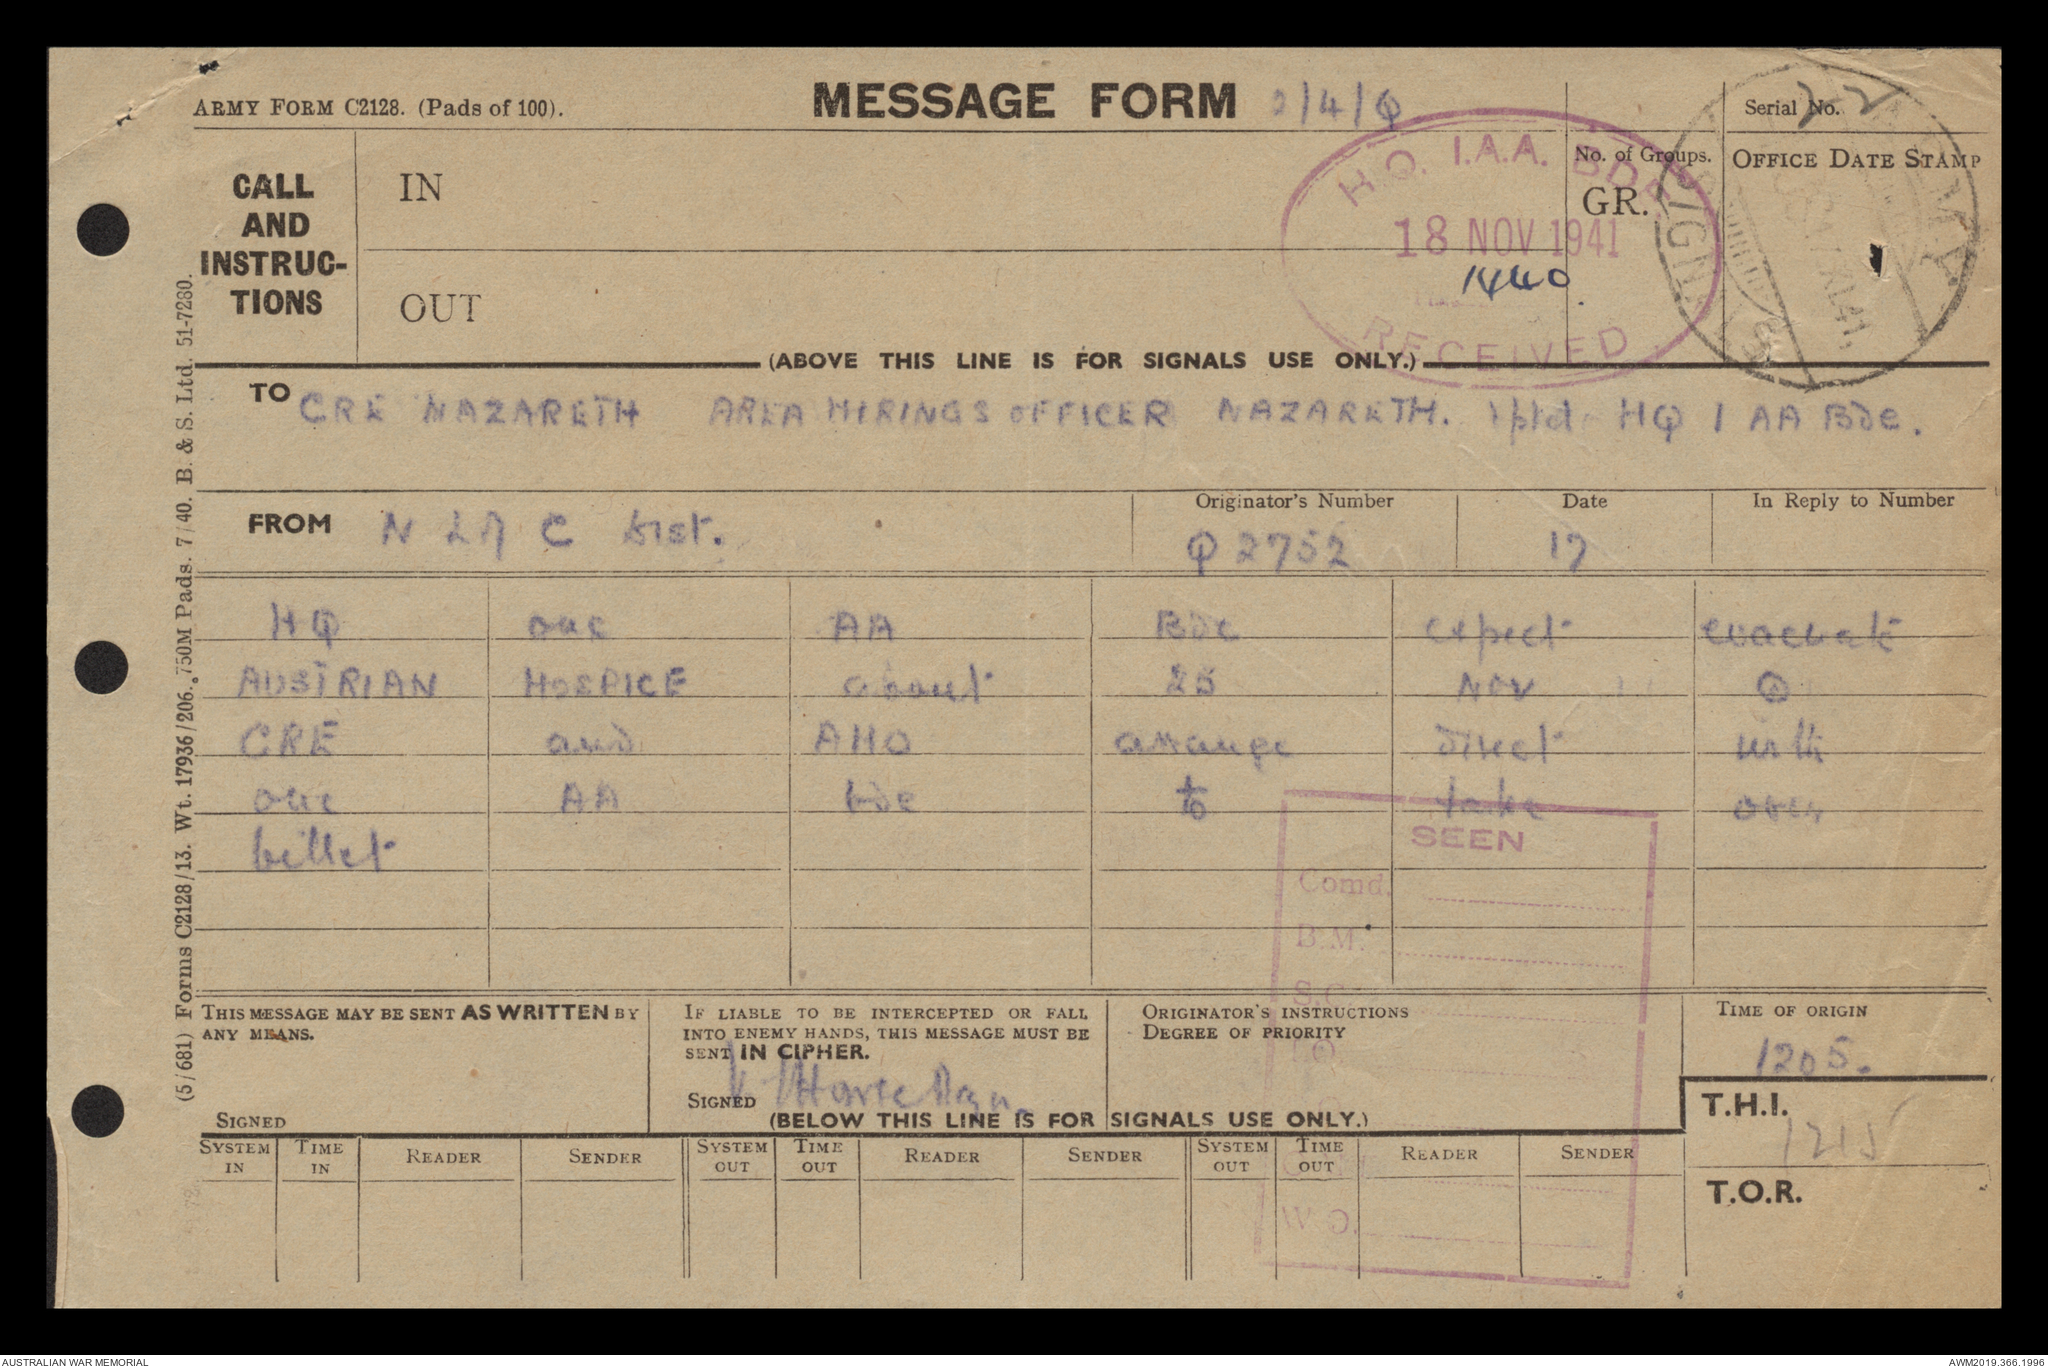 ARMY FORM C2128. (Pads of 100).
MESSAGE FORM 2/4/Q
Serial No. 22
CALL AND INSTRUC-TIONS
IN
OUT
No. of Groups.
GR.
OFFICE DATE STAMP
H.Q. 1.A.A. BDE.
18 NOV 1941
1440
RECEIVED
SIGNALS
(ABOVE THIS LINE IS FOR SIGNALS USE ONLY.)
TO CRE NAZARETH AREA HIRINGS OFFICER NAZARETH. rptd HQ 1 AA Bde.
FROM N L of C Dist.
Originator's Number
Q 2752
Date
17
In Reply to Number
HQ one AA Bde expect evacuate
AUSTRIAN HOSPICE about 25 NOV
CRE and AHO arrange direct with
one AA bde to take over
billet
SEEN
Comd.
B.M.
S.C.
I.O.
W.O.
THIS MESSAGE MAY BE SENT AS WRITTEN BY
ANY MEANS.
SIGNED
IF LIABLE TO BE INTERCEPTED OR FALL
INTO ENEMY HANDS, THIS MESSAGE MUST BE
SENT IN CIPHER.
SIGNED
ORIGINATOR'S INSTRUCTIONS
DEGREE OF PRIORITY
TIME OF ORIGIN
1205.
(BELOW THIS LINE IS FOR SIGNALS USE ONLY.)
T.H.I.
1215
T.O.R.
SYSTEM IN TIME IN READER SENDER SYSTEM OUT TIME OUT READER SENDER SYSTEM OUT TIME OUT READER SENDER
(5/681) Forms C2128/13. Wt. 17936/206. 750M Pads. 7/40. B. & S. Ltd. 51-7280.
AUSTRALIAN WAR MEMORIAL
AWM2019.366.1996